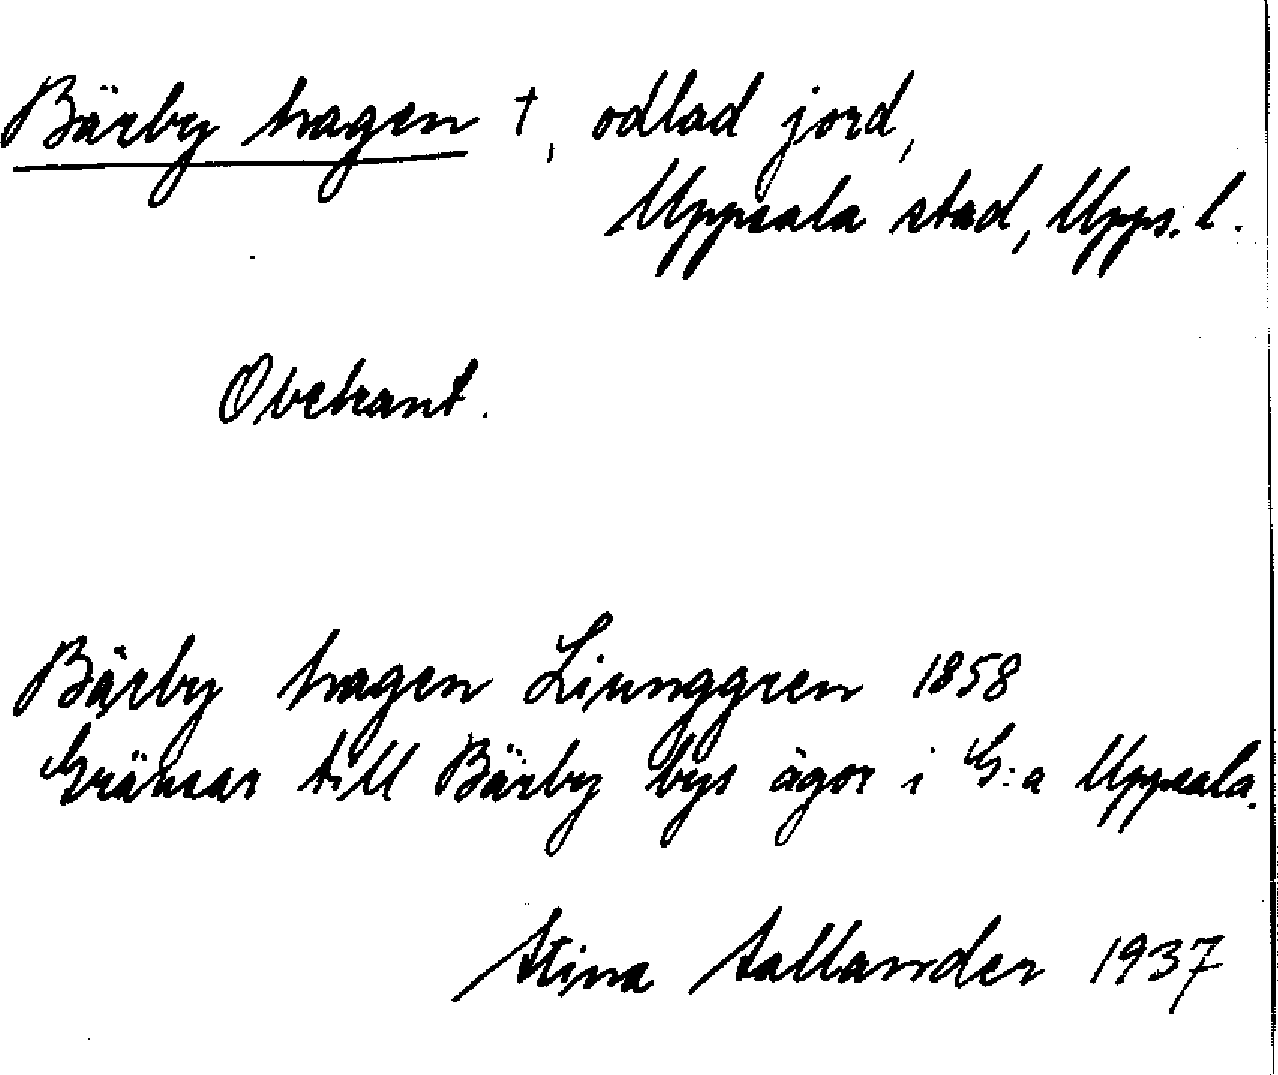 Bärby hagen †, odlad jord,
Uppsala stad, Upps. l.
Obekant.
Bärby hagen Liunggren 1858
Gränsar till Bärby bys ägor i G:a Uppsala.
Stina Sallander 1937